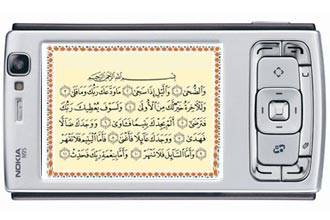 بِسْمِ ٱللَّهِ ٱلرَّحْمَٰنِ ٱلرَّحِيمِ
وَٱلضُّحَىٰ ۝ وَٱلَّيْلِ إِذَا سَجَىٰ ۝ مَا وَدَّعَكَ رَبُّكَ وَمَا قَلَىٰ ۝
وَلَلْأَخِرَةُ خَيْرٌ لَّكَ مِنَ ٱلْأُولَىٰ ۝ وَلَسَوْفَ يُعْطِيكَ رَبُّكَ
فَتَرْضَىٰ ۝ أَلَمْ يَجِدْكَ يَتِيمًا فَـَٔاوَىٰ ۝ وَوَجَدَكَ ضَآلًّا
فَهَدَىٰ ۝ وَوَجَدَكَ عَآئِلًا فَأَغْنَىٰ ۝ فَأَمَّا ٱلْيَتِيمَ فَلَا تَقْهَرْ
۝ وَأَمَّا ٱلسَّآئِلَ فَلَا تَنْهَرْ ۝ وَأَمَّا بِنِعْمَةِ رَبِّكَ فَحَدِّثْ ۝
NOKIA
N95